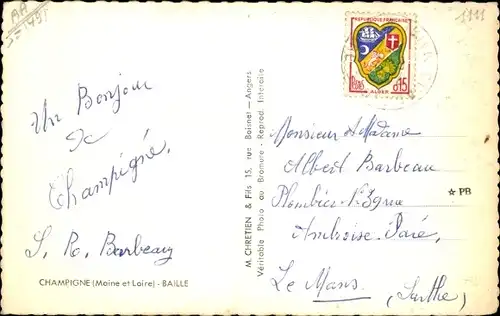 AA
REPUBLIQUE FRANÇAISE
Postes 0,15
ALGER
Un Bonjour
de
Champigné.
S. R. Barbeau
CHAMPIGNE (Maine et Loire) - BAILLE
M. CHRETIEN & Fils 15, rue Boisnet — Angers
Véritable Photo au Bromure - Reprod. Interdite
Monsieur et Madame
Albert Barbeau
Plombier
Ambroise Paré.
☆ PB
Le Mans
(Sarthe)